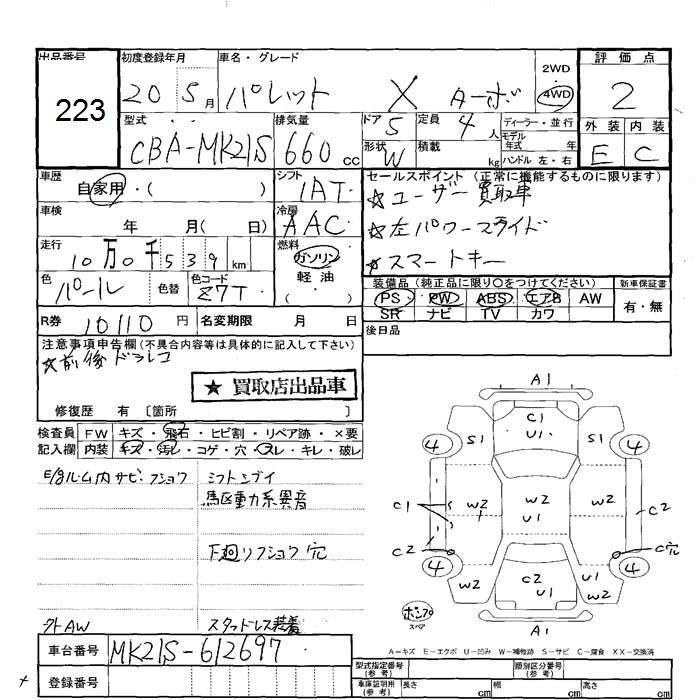 出品番号 初度登録年月 車名・グレード 2WD 評価点
223 20 5月 パレット X ターボ 4WD 2
型式 排気量 ドア 定員 ディーラー・並行 外装 内装
CBA-MK21S 660cc 5 4人 モデル年式 年 E C
形状 W 積載 kg ハンドル 左・右
車歴 自家用・( ) シフト 1AT
セールスポイント (正常に機能するものに限ります)
☆ユーザー買取車
車検 年 月( 日) 冷房 AAC
☆左パワースライド
走行 10万0千539km 燃料 ガソリン 軽油 ( )
☆スマートキー
色 パール 色替 色コード Z7T
装備品 (純正品に限り○をつけてください) 新車保証書
PS PW ABS エアB AW 有・無
SR ナビ TV カワ
R券 10110円 名変期限 月 日 後日品
注意事項申告欄(不具合内容等は具体的に記入して下さい)
☆前後ドラレコ
★買取店出品車
修復歴 有〔箇所 〕
検査員 FW キズ・飛石・ヒビ割・リペア跡・×要
記入欄 内装 キズ・汚レ・コゲ・穴・スレ・キレ・破レ
E/gルーム内サビ・フショウ シフトシブイ
駆動系異音
下廻リフショウ穴
外AW スタッドレス装着
A1
C1
U1
4 S1 S1 4
C1 W2 W2 W2 C2
U1
C2 C穴
4 W2 C2 U1 U1 W2 4
ポンプ
スペア
A1
A=キズ E=エクボ U=凹み W=補修跡 S=サビ C=腐食 XX=交換済
車台番号 MK21S-612697
登録番号
型式指定番号(参考) 類別区分番号(参考)
車庫証明用(参考) 長さ cm 幅 cm 高さ cm